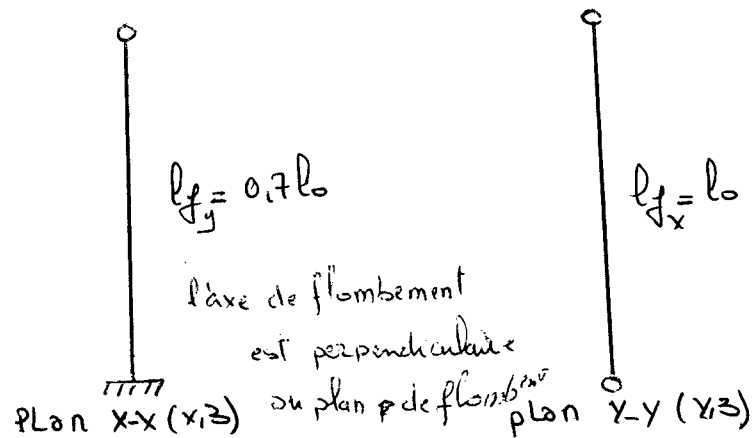 lfy = 0,7lo
lfx = lo
l'axe de flombement
est perpendiculaire
au plan de flombemt
PLan X-X (x,z)
plan Y-Y (Y,z)